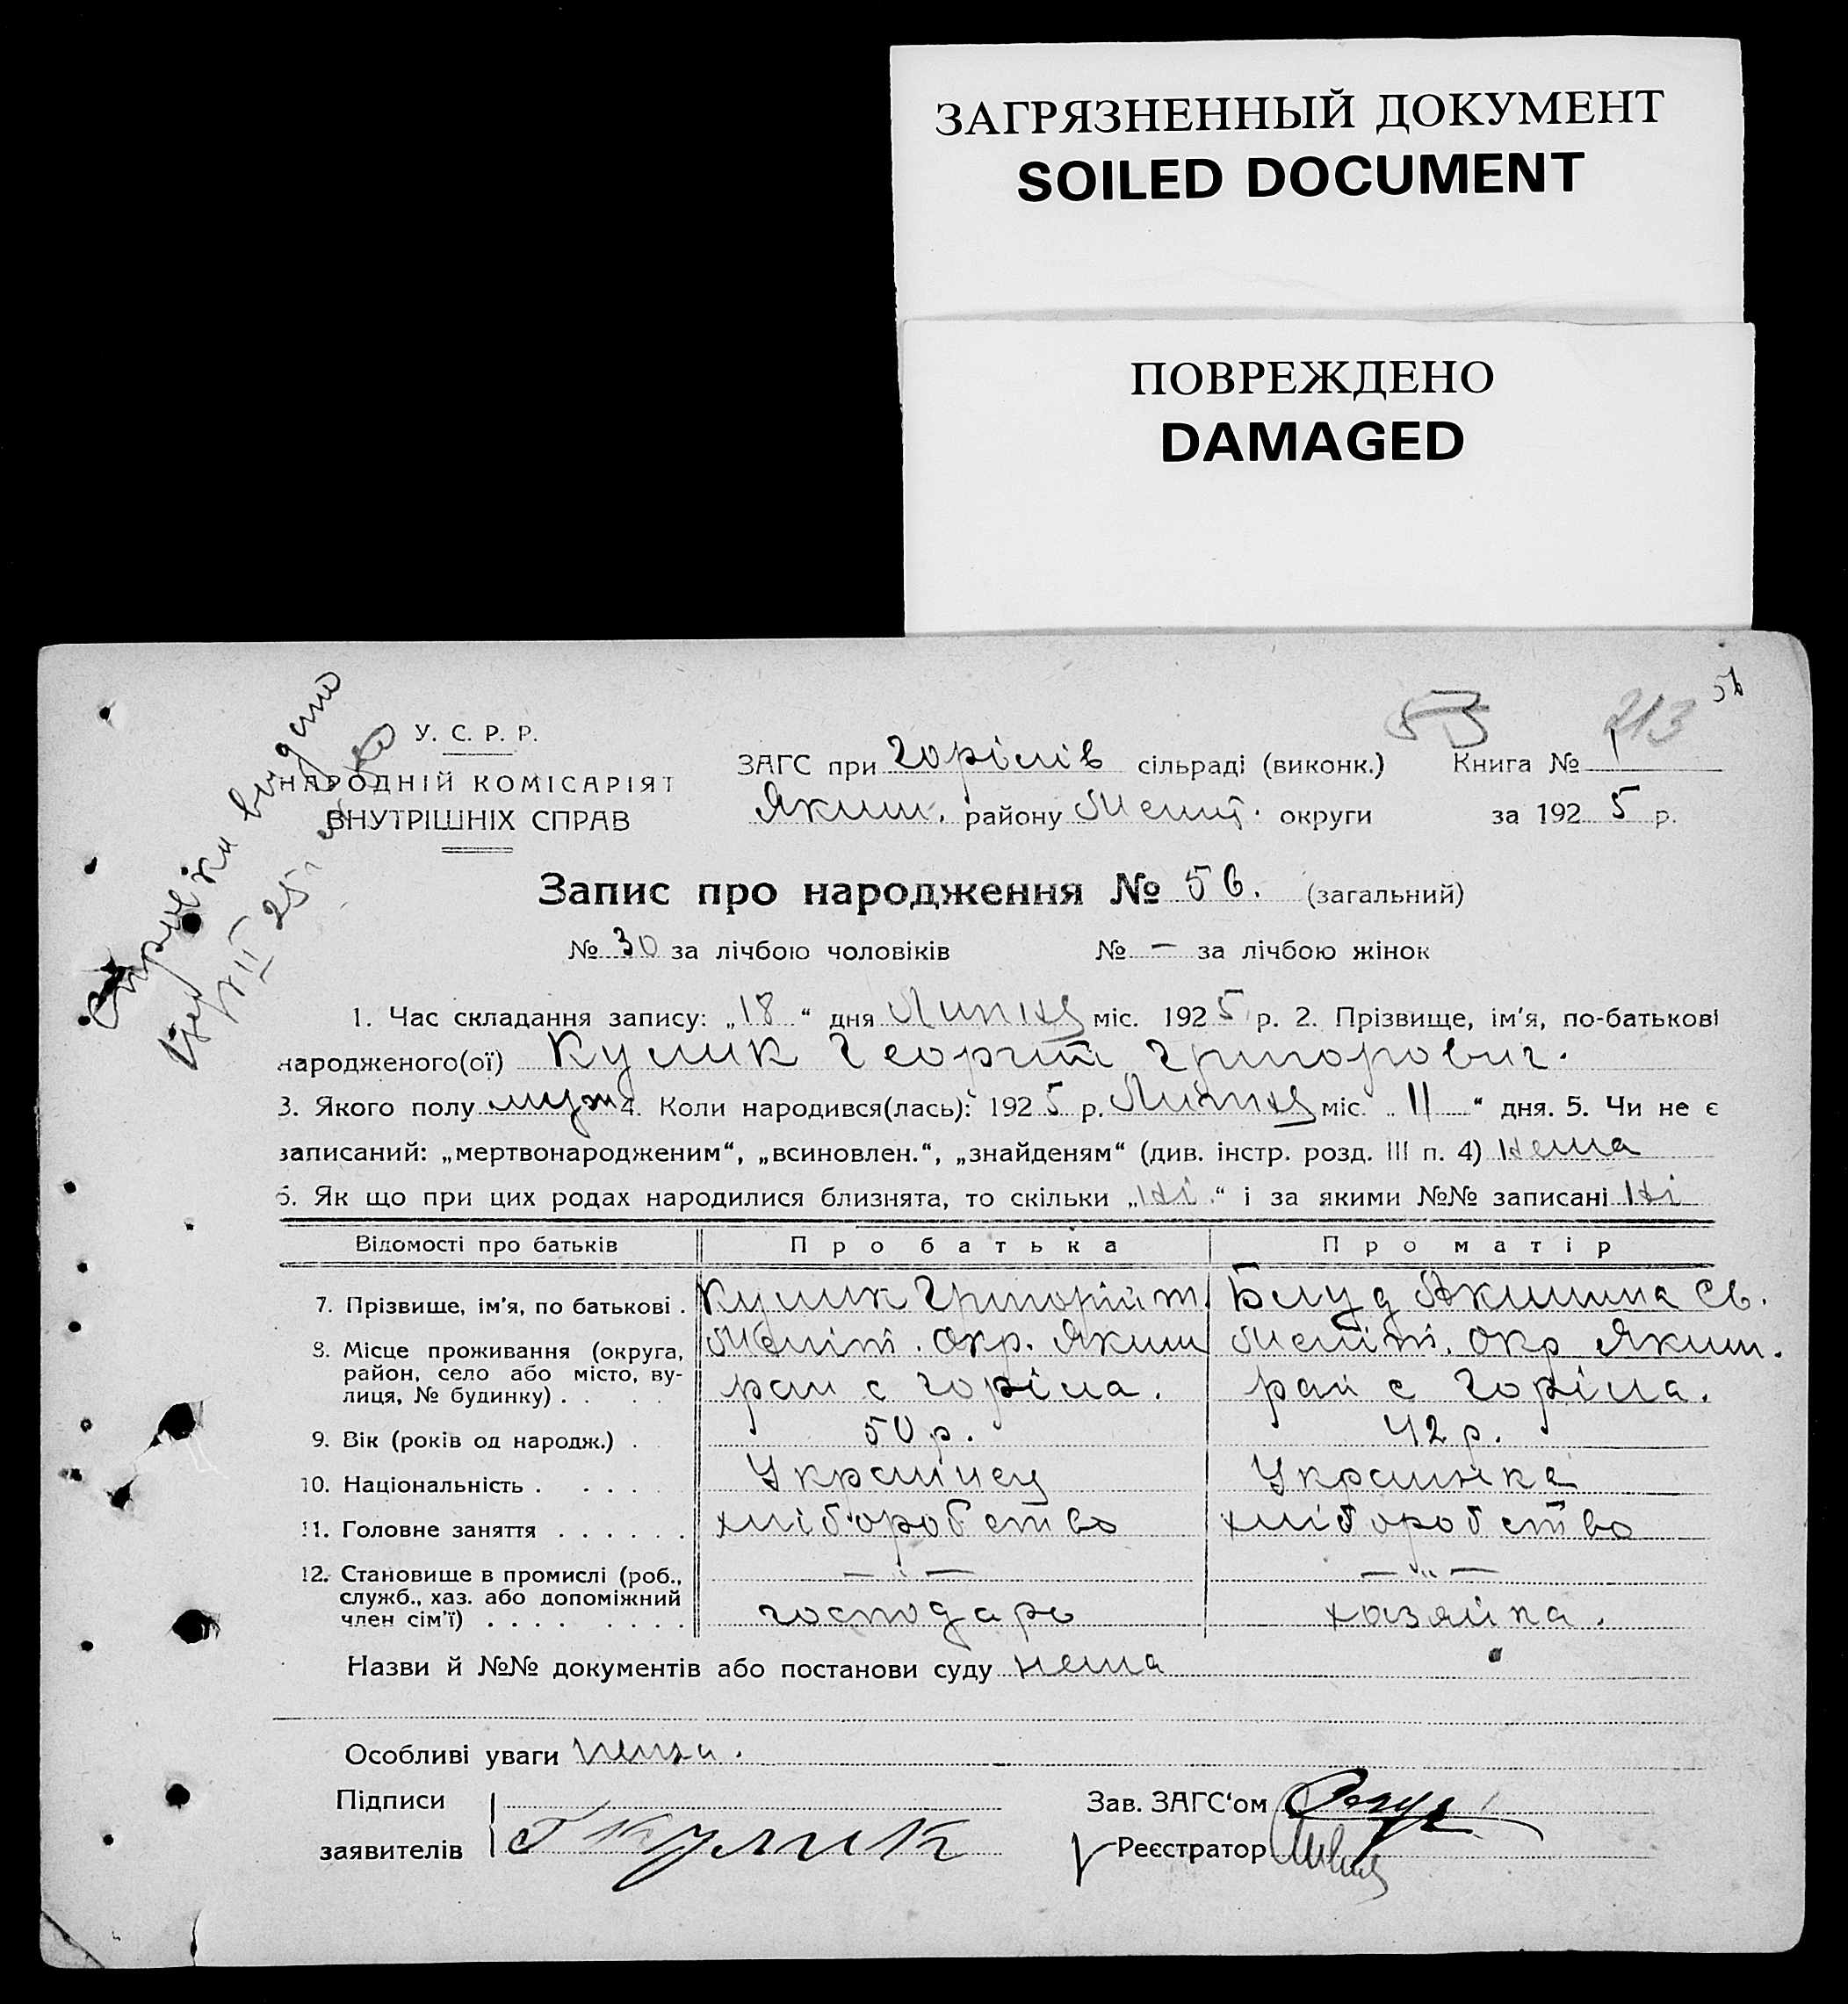 ЗАГРЯЗНЕННЫЙ ДОКУМЕНТ
SOILED DOCUMENT
ПОВРЕЖДЕНО
DAMAGED
56
53 213
Справка видано
25
У. С. Р. Р.
НАРОДНІЙ КОМІСАРІЯТ
ВНУТРІШНІХ СПРАВ
ЗАГС при Горілів сільраді (виконк.) Книга № 1
Яким. району Меліт. округи за 1925 р.
Запис про народження № 56. (загальний)
№ 30 за лічбою чоловіків № — за лічбою жінок
1. Час складання запису: „18“ дня Липня міс. 1925 р. 2. Прізвище, ім'я, по-батькові
народженого(ої) Кулик Георгій Григорович.
3. Якого полу муж 4. Коли народився(лась): 1925 р. Липня міс. „11“ дня. 5. Чи не є
записаний: „мертвонародженим“, „всиновлен.“, „знайденям“ (див. інстр. розд. III п. 4) нема
6. Як що при цих родах народилися близнята, то скільки „ні“ і за якими №№ записані ні
Відомості про батьків Про батька Про матір
7. Прізвище, ім'я, по батькові . Кулик Григорій т. Блуд Якилина Св.
8. Місце проживання (округа, Меліт. Окр. Яким Меліт. Окр Яким.
район, село або місто, ву- рай с Горіла. рай с Горіла.
лиця, № будинку) . . . .
9. Вік (років од народж.) . 50 р. 42 р.
10. Національність . . . . . Украинец Украинка
11. Головне заняття . . . . . . хліборобство хліборобство
12. Становище в промислі (роб., — „ — — „ —
служб., хаз. або допоміжний
член сім'ї) . . . . . . . . господарь хазяйка.
Назви й №№ документів або постанови суду нема
Особливі уваги нема.
Підписи Зав. ЗАГС'ом
заявителів Г Кулик Реєстратор